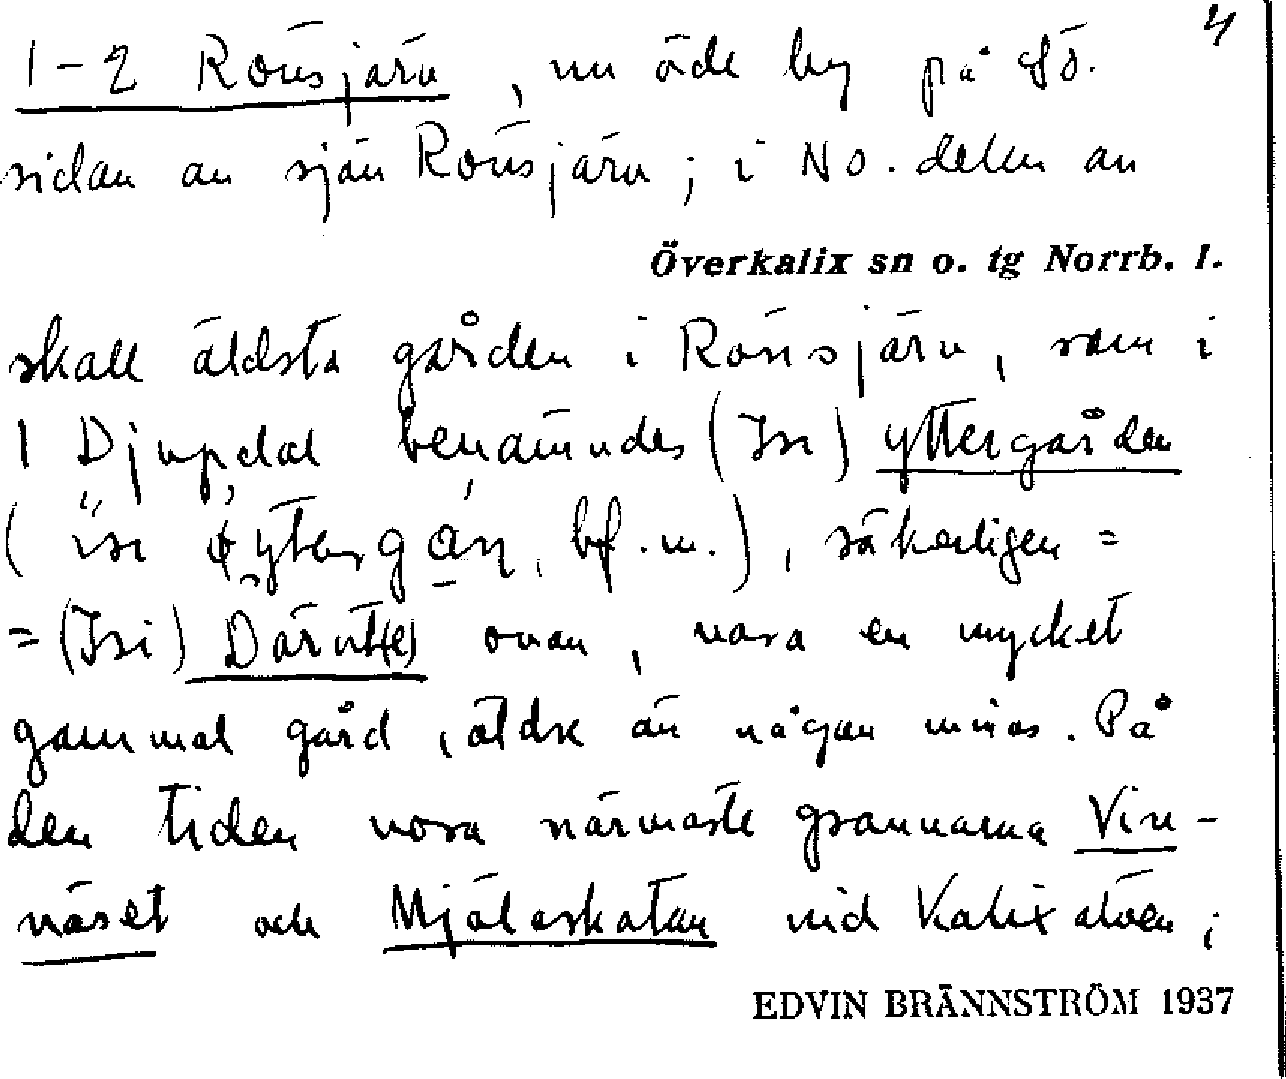 4
1-2 Rönsjärv, nu öde by på Sö.
sidan av sjön Rönsjärv; i NO. delen av
Överkalix sn o. tg Norrb. l.
skall äldsta gården i Rönsjärv, som i
1 Djupdal benämndes (Isi) yttergården
bf. m.), säkerligen =
= (Isi) Därutt(e) ovan, vara en mycket
gammal gård, äldre än någon minns. På
den tiden voro närmaste grannarna Vin-
näset och Mjölaskatan vid Kalix älven;
EDVIN BRÄNNSTRÖM 1937